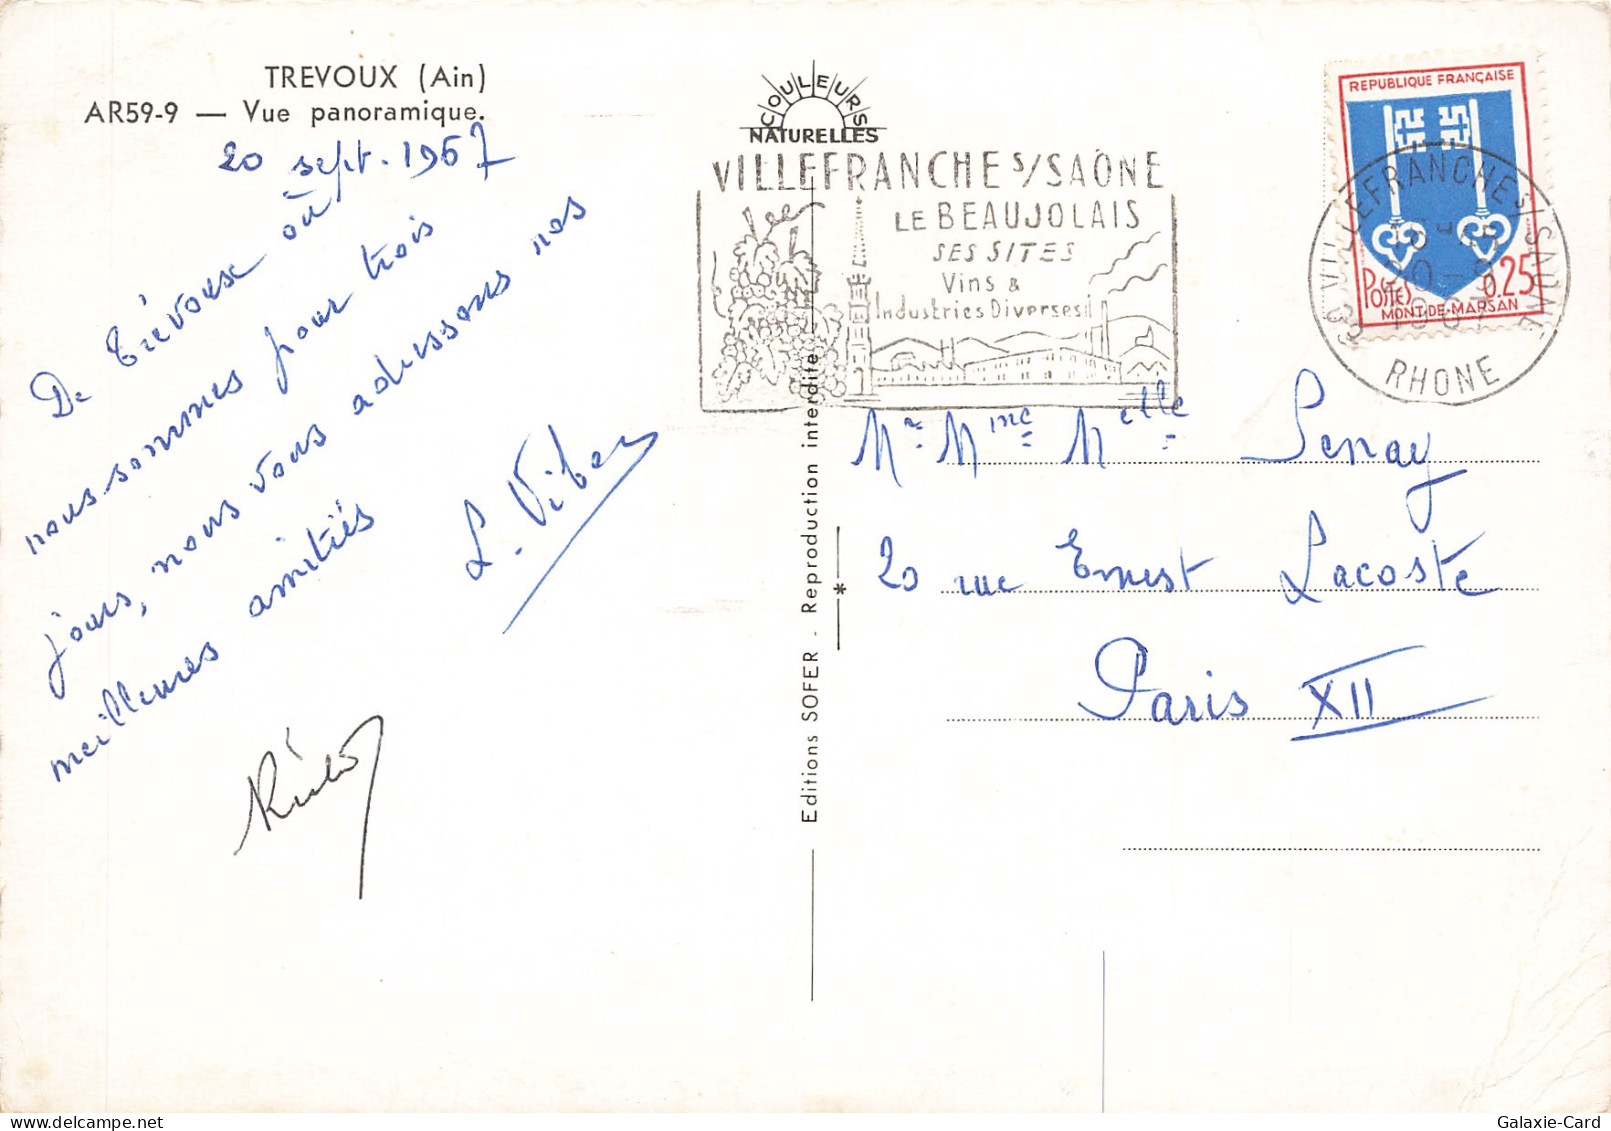 TREVOUX (Ain)
AR59-9 — Vue panoramique.
20 sept. 1967
De Trévoux où
nous sommes pour trois
jours, nous vous adressons nos
meilleures amitiés
L.
COULEURS
NATURELLES
VILLEFRANCHE S/SAÔNE
LE BEAUJOLAIS
SES SITES
Vins &
Industries Diverses
REPUBLIQUE FRANÇAISE
POSTES 0,25
MONT-DE-MARSAN
VILLEFRANCHE S/SAONE
20-9
1967
RHONE
Editions SOFER - Reproduction interdite
Mr Mme Melle Penay
20 rue Ernest Lacoste
Paris XII
Galaxie-Card